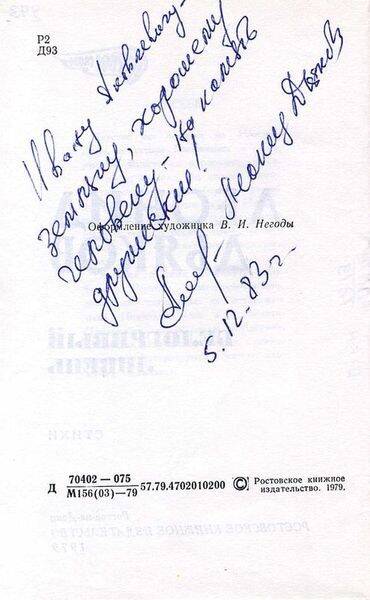 Р2
Д93
Ивану Яковлевичу –
земляку, хорошему
человеку – на память
дружески!
Леонид Дьяков
5.12.83 г.
Оформление художника В. И. Негоды
Д 70402—075 / М156(03)—79 57.79.4702010200 © Ростовское книжное издательство. 1979.